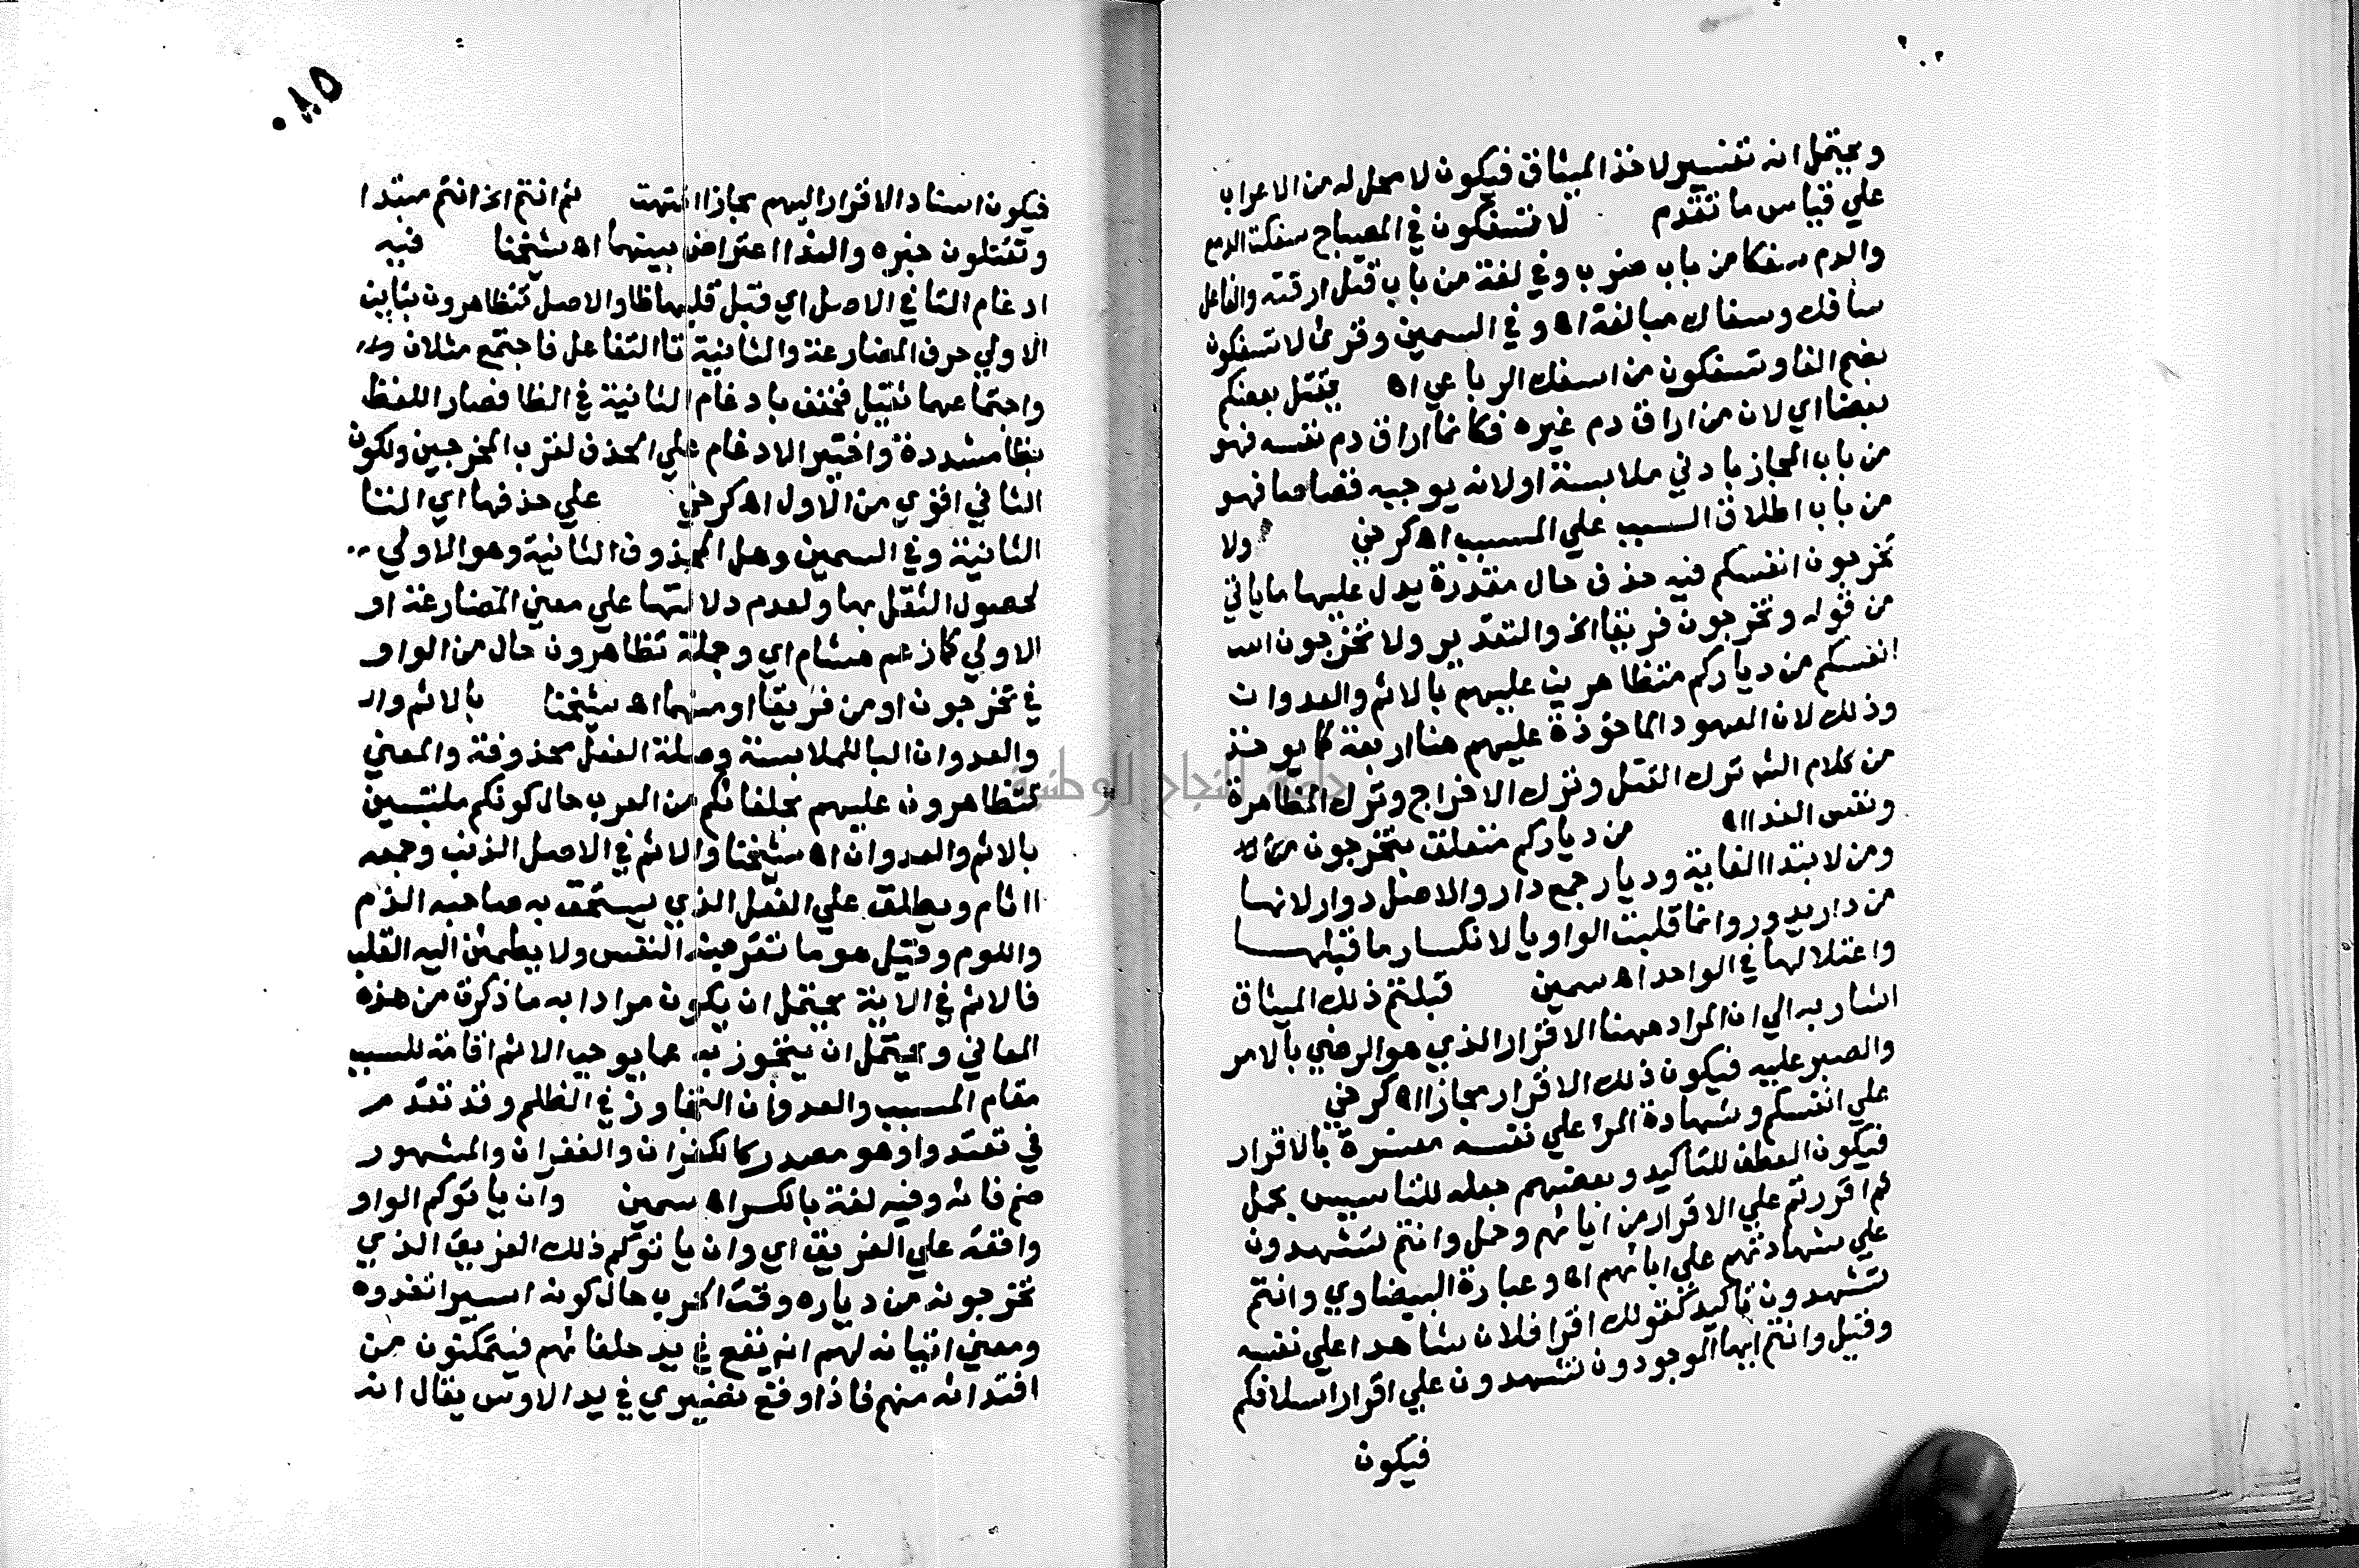 ويحتمل انه تفسير لاخذ الميثاق فيكون لا محل له من الاعراب
علي قياس ما تقدم لا تسفكون في المصباح سفكت الدمع
والدم سفكا من باب ضرب وفي لغة من باب قتل ارقته والفاعل
سافك وسفاك مبالغة اه وفي السمين وقرئ لا تسفكون
بضم الفا وتسفكون من اسفك الرباعي اه بقتل بعضكم
بعضا اي لان من اراق دم غيره فكانما اراق دم نفسه فهو
من باب المجاز بادني ملابسة او لانه يوجبه قصاصا فهو
من باب اطلاق السبب علي المسبب اه كرخي ولا
تخرجون انفسكم فيه حذف حال مقدرة يدل عليها ما ياتي
من قوله وتخرجون فريقا الخ والتقدير ولا تخرجون
انفسكم من دياركم متظاهرين عليهم بالاثم والعدوان
وذلك لان العهود الماخوذة عليهم هنا اربعة كما يوخذ
من كلام الش ترك القتل وترك الاخراج وترك المظاهرة
ونفس الفدا اه من دياركم متعلق بتخرجون
ومن لابتدا الغاية وديار جمع دار والاصل دوار لانها
من دار يدور وانما قلبت الواو يا لانكسار ما قبلها
واعتلالها في الواحد اه سمين قبلتم ذلك الميثاق
اشار به الي ان المراد ههنا الاقرار الذي هو الرضي بالامر
والصبر عليه فيكون ذلك الاقرار مجازا اه كرخي
علي انفسكم وشهادة المرء علي نفسه مفسرة بالاقرار
فيكون العطف للتاكيد وبعضهم جعله للتاسيس بحمل
ثم اقررتم علي الاقرار من ابائهم وحمل وانتم تشهدون
علي شهادتهم علي ابائهم اه وعبارة البيضاوي وانتم
تشهدون تاكيد كقولك اقر فلان شاهدا علي نفسه
وقيل وانتم ايها الموجودون تشهدون علي اقرار اسلافكم
فيكون
٨٥
فيكون اسناد الاقرار اليهم مجازا انتهت ثم انتم الخ انتم مبتدا
وتقتلون خبره والندا اعتراض بينهما اه شيخنا فيه
ادغام التا في الاصل اي قبل قلبها ظا والاصل تتظاهرون بتاين
الاولي حرف المضارعة والثانية تا التفاعل فاجتمع مثلان
واجتماعهما ثقيل فخفف بادغام الثانية في الظا فصار اللفظ
بظا مشددة واختير الادغام علي الحذف لقرب المخرجين ولكون
الثاني اقوي من الاول اه كرخي علي حذفها اي التا
الثانية وفي السمين وهل المحذوف الثانية وهو الاولي
لحصول الثقل بها ولعدم دلالتها علي معني المضارعة او
الاولي كما زعم هشام اي وجملة تظاهرون حال من الواو
في تخرجون او من فريقا او منهما اه شيخنا بالاثم وال
والعدوان البا للملابسة وصلة الفعل محذوفة والمعني
تتظاهرون عليهم بحلفائكم من العرب حال كونكم ملتبسين
بالاثم والعدوان اه شيخنا والاثم في الاصل الذنب وجمعه
ااثام ويطلق علي الفعل الذي يستحق به صاحبه الذم
واللوم وقيل هو ما تنفر منه النفس ولا يطمئن اليه القلب
فالاثم في الاية يحتمل ان يكون مرادا به ما ذكرت من هذه
المعاني ويحتمل ان يتجوز به عما يوجب الاثم اقامة للسبب
مقام المسبب والعدوان التجاوز في الظلم وقد تقدم
في تعتدوا وهو مصدر كالكفران والغفران والمشهور
ضم فائه وفيه لغة بالكسر اه سمين وان ياتوكم الواو
واقعة علي الفريق اي وان ياتوكم ذلك الفريق الذي
تخرجونه من دياره وقت الحرب حال كونه اسيرا تفدوه
ومعني اتيانه لهم انه يقع في يد حلفائهم فيتمكنون من
افتدائه منهم فاذا وقع نضيري في يد الاوس يقال انه
جامعة النجاح الوطنية